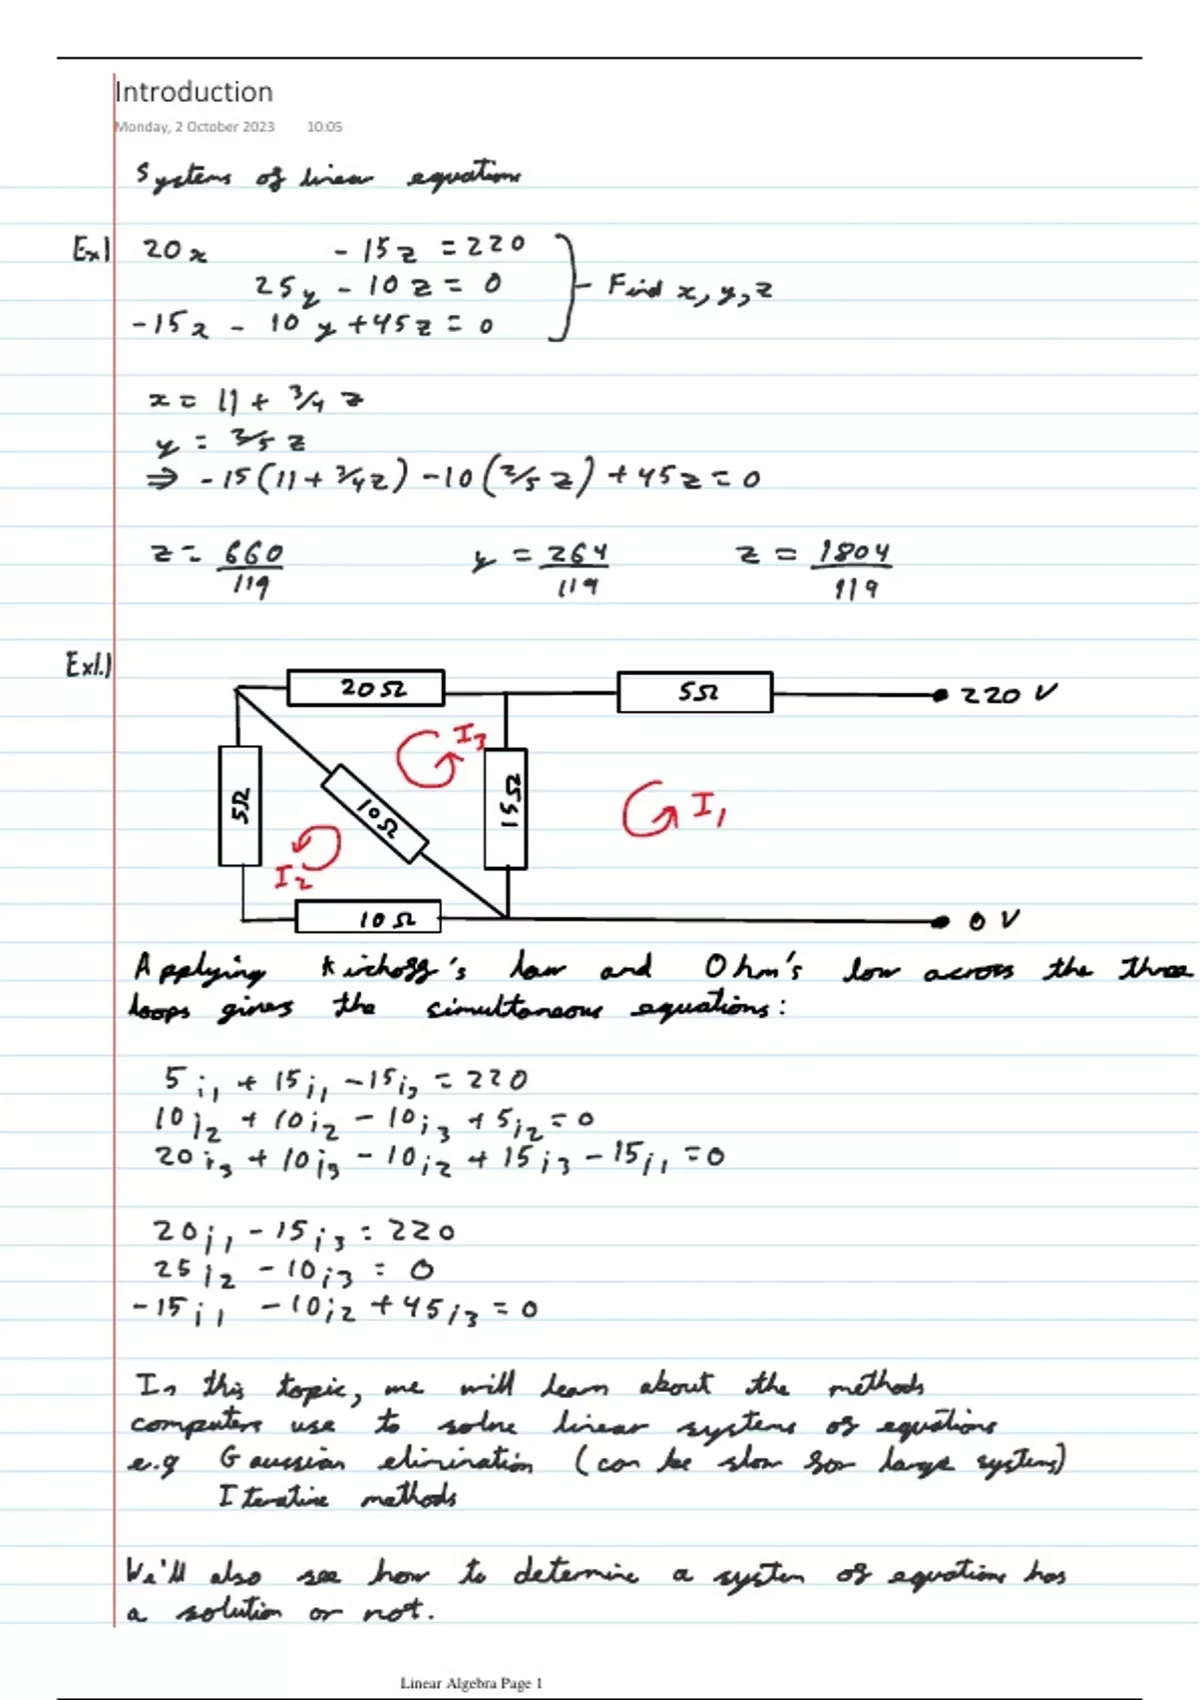 Introduction
Monday, 2 October 2023 10:05
Systems of linear equations
Ex1 20x - 15z = 220
25y - 10z = 0
-15x - 10y + 45z = 0
Find x, y, z
x = 11 + 3/4 z
y = 2/5 z
⇒ -15(11 + 3/4z) - 10(2/5z) + 45z = 0
z = 660/119 y = 264/119 z = 1804/119
Ex1.)
20Ω 5Ω 220 V
I3
5Ω 10Ω 15Ω I1
I2
10Ω 0 V
Applying Kirchoff's law and Ohm's law across the three
loops gives the simultaneous equations:
5i1 + 15i1 - 15i3 = 220
10i2 + 10i2 - 10i3 + 5i2 = 0
20i3 + 10i3 - 10i2 + 15i3 - 15i1 = 0
20i1 - 15i3 = 220
25i2 - 10i3 = 0
-15i1 - 10i2 + 45i3 = 0
In this topic, we will learn about the methods
computers use to solve linear systems of equations
e.g Gaussian elimination (can be slow for large systems)
Iterative methods
We'll also see how to determine a system of equations has
a solution or not.
Linear Algebra Page 1